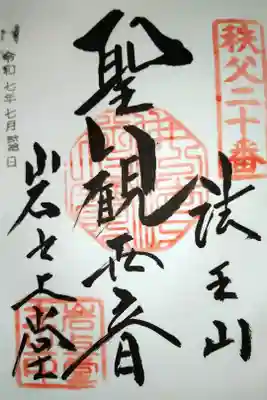 秩父二十番
法王山
聖観世音
岩之上堂
令和七年七月 日